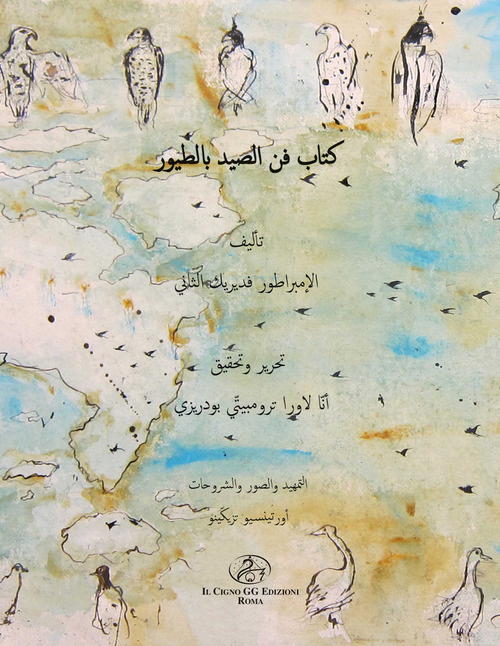 كتاب فن الصيد بالطيور
تأليف
الإمبراطور فديريك الثاني
تحرير وتحقيق
أنّا لاورا ترومبيتّي بودريزي
التمهيد والصور والشروحات
أورتينسيو تزيكينو
IL CIGNO GG EDIZIONI
ROMA